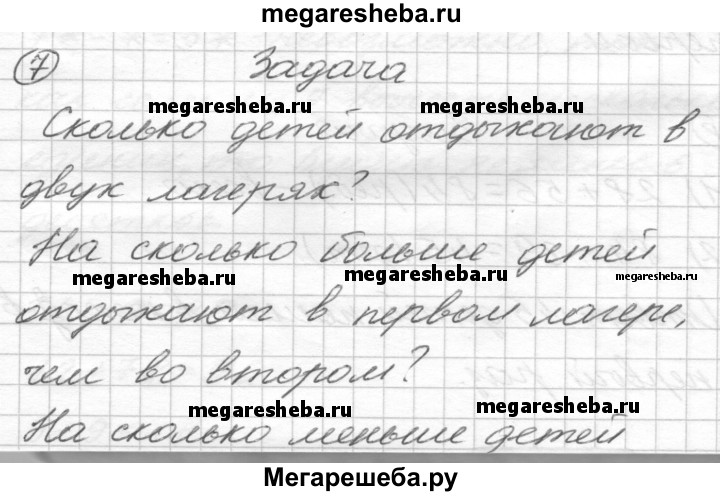 megaresheba.ru
7 Задача
megaresheba.ru megaresheba.ru
Сколько детей отдыхают в
двух лагерях?
На сколько больше детей
megaresheba.ru megaresheba.ru megaresheba.ru
отдыхают в первом лагере,
чем во втором?
megaresheba.ru megaresheba.ru
На сколько меньше детей
Мегарешеба.ру